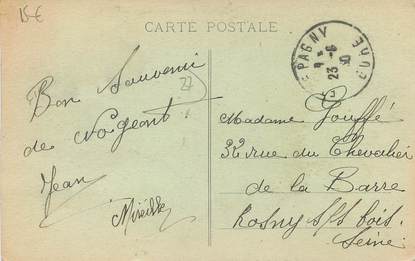 15€
CARTE POSTALE
EPAGNY
EURE
23-6
30
27
Bon Souvenir
de Nogeant
Jean
Mireille
Madame Gouffé
32 rue du Chevalier
de la Barre
Rosny s/s bois.
Seine